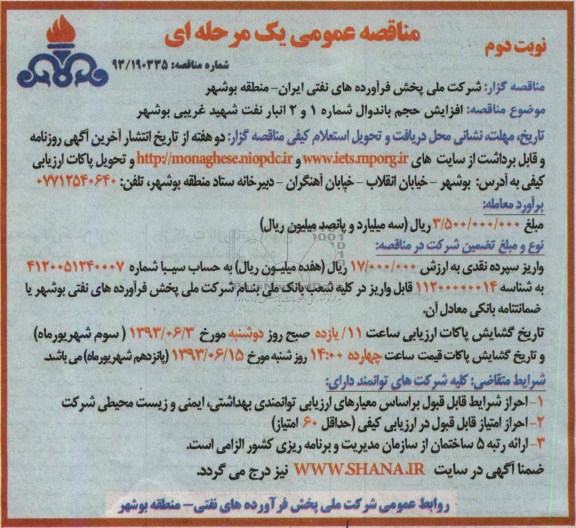 نوبت دوم
مناقصه عمومی یک مرحله ای
شماره مناقصه: ۹۳/۱۹۰۳۳۵
مناقصه گزار: شرکت ملی پخش فرآورده های نفتی ایران- منطقه بوشهر
موضوع مناقصه: افزایش حجم باندوال شماره ۱ و ۲ انبار نفت شهید غریبی بوشهر
تاریخ، مهلت، نشانی محل دریافت و تحویل استعلام کیفی مناقصه گزار: دو هفته از تاریخ انتشار آخرین آگهی روزنامه
و قابل برداشت از سایت های www.iets.mporg.ir و http://monaghese.niopdc.ir و تحویل پاکات ارزیابی
کیفی به آدرس: بوشهر - خیابان انقلاب - خیابان آهنگران - دبیرخانه ستاد منطقه بوشهر، تلفن: ۰۷۷۱۲۵۴۰۶۴۰
برآورد معامله:
مبلغ ۳/۵۰۰/۰۰۰/۰۰۰ ریال (سه میلیارد و پانصد میلیون ریال)
نوع و مبلغ تضمین شرکت در مناقصه:
واریز سپرده نقدی به ارزش ۱۷/۰۰۰/۰۰۰ ریال (هفده میلیون ریال) به حساب سیبا شماره ۴۱۲۰۰۵۱۲۴۰۰۰۷
به شناسه ۱۱۲۰۰۰۰۰۰۱۴ قابل واریز در کلیه شعب بانک ملی بنام شرکت ملی پخش فرآورده های نفتی بوشهر یا
ضمانتنامه بانکی معادل آن.
تاریخ گشایش پاکات ارزیابی ساعت ۱۱/ یازده صبح روز دوشنبه مورخ ۱۳۹۳/۰۶/۳ ( سوم شهریورماه)
و تاریخ گشایش پاکات قیمت ساعت چهارده ۱۴:۰۰ روز شنبه مورخ ۱۳۹۳/۰۶/۱۵ (پانزدهم شهریورماه) می باشد.
شرایط متقاضی: کلیه شرکت های توانمند دارای:
۱- احراز شرایط قابل قبول براساس معیارهای ارزیابی توانمندی بهداشتی، ایمنی و زیست محیطی شرکت
۲- احراز امتیاز قابل قبول در ارزیابی کیفی (حداقل ۶۰ امتیاز)
۳- ارائه رتبه ۵ ساختمان از سازمان مدیریت و برنامه ریزی کشور الزامی است.
ضمنا آگهی در سایت WWW.SHANA.IR نیز درج می گردد.
روابط عمومی شرکت ملی پخش فرآورده های نفتی- منطقه بوشهر